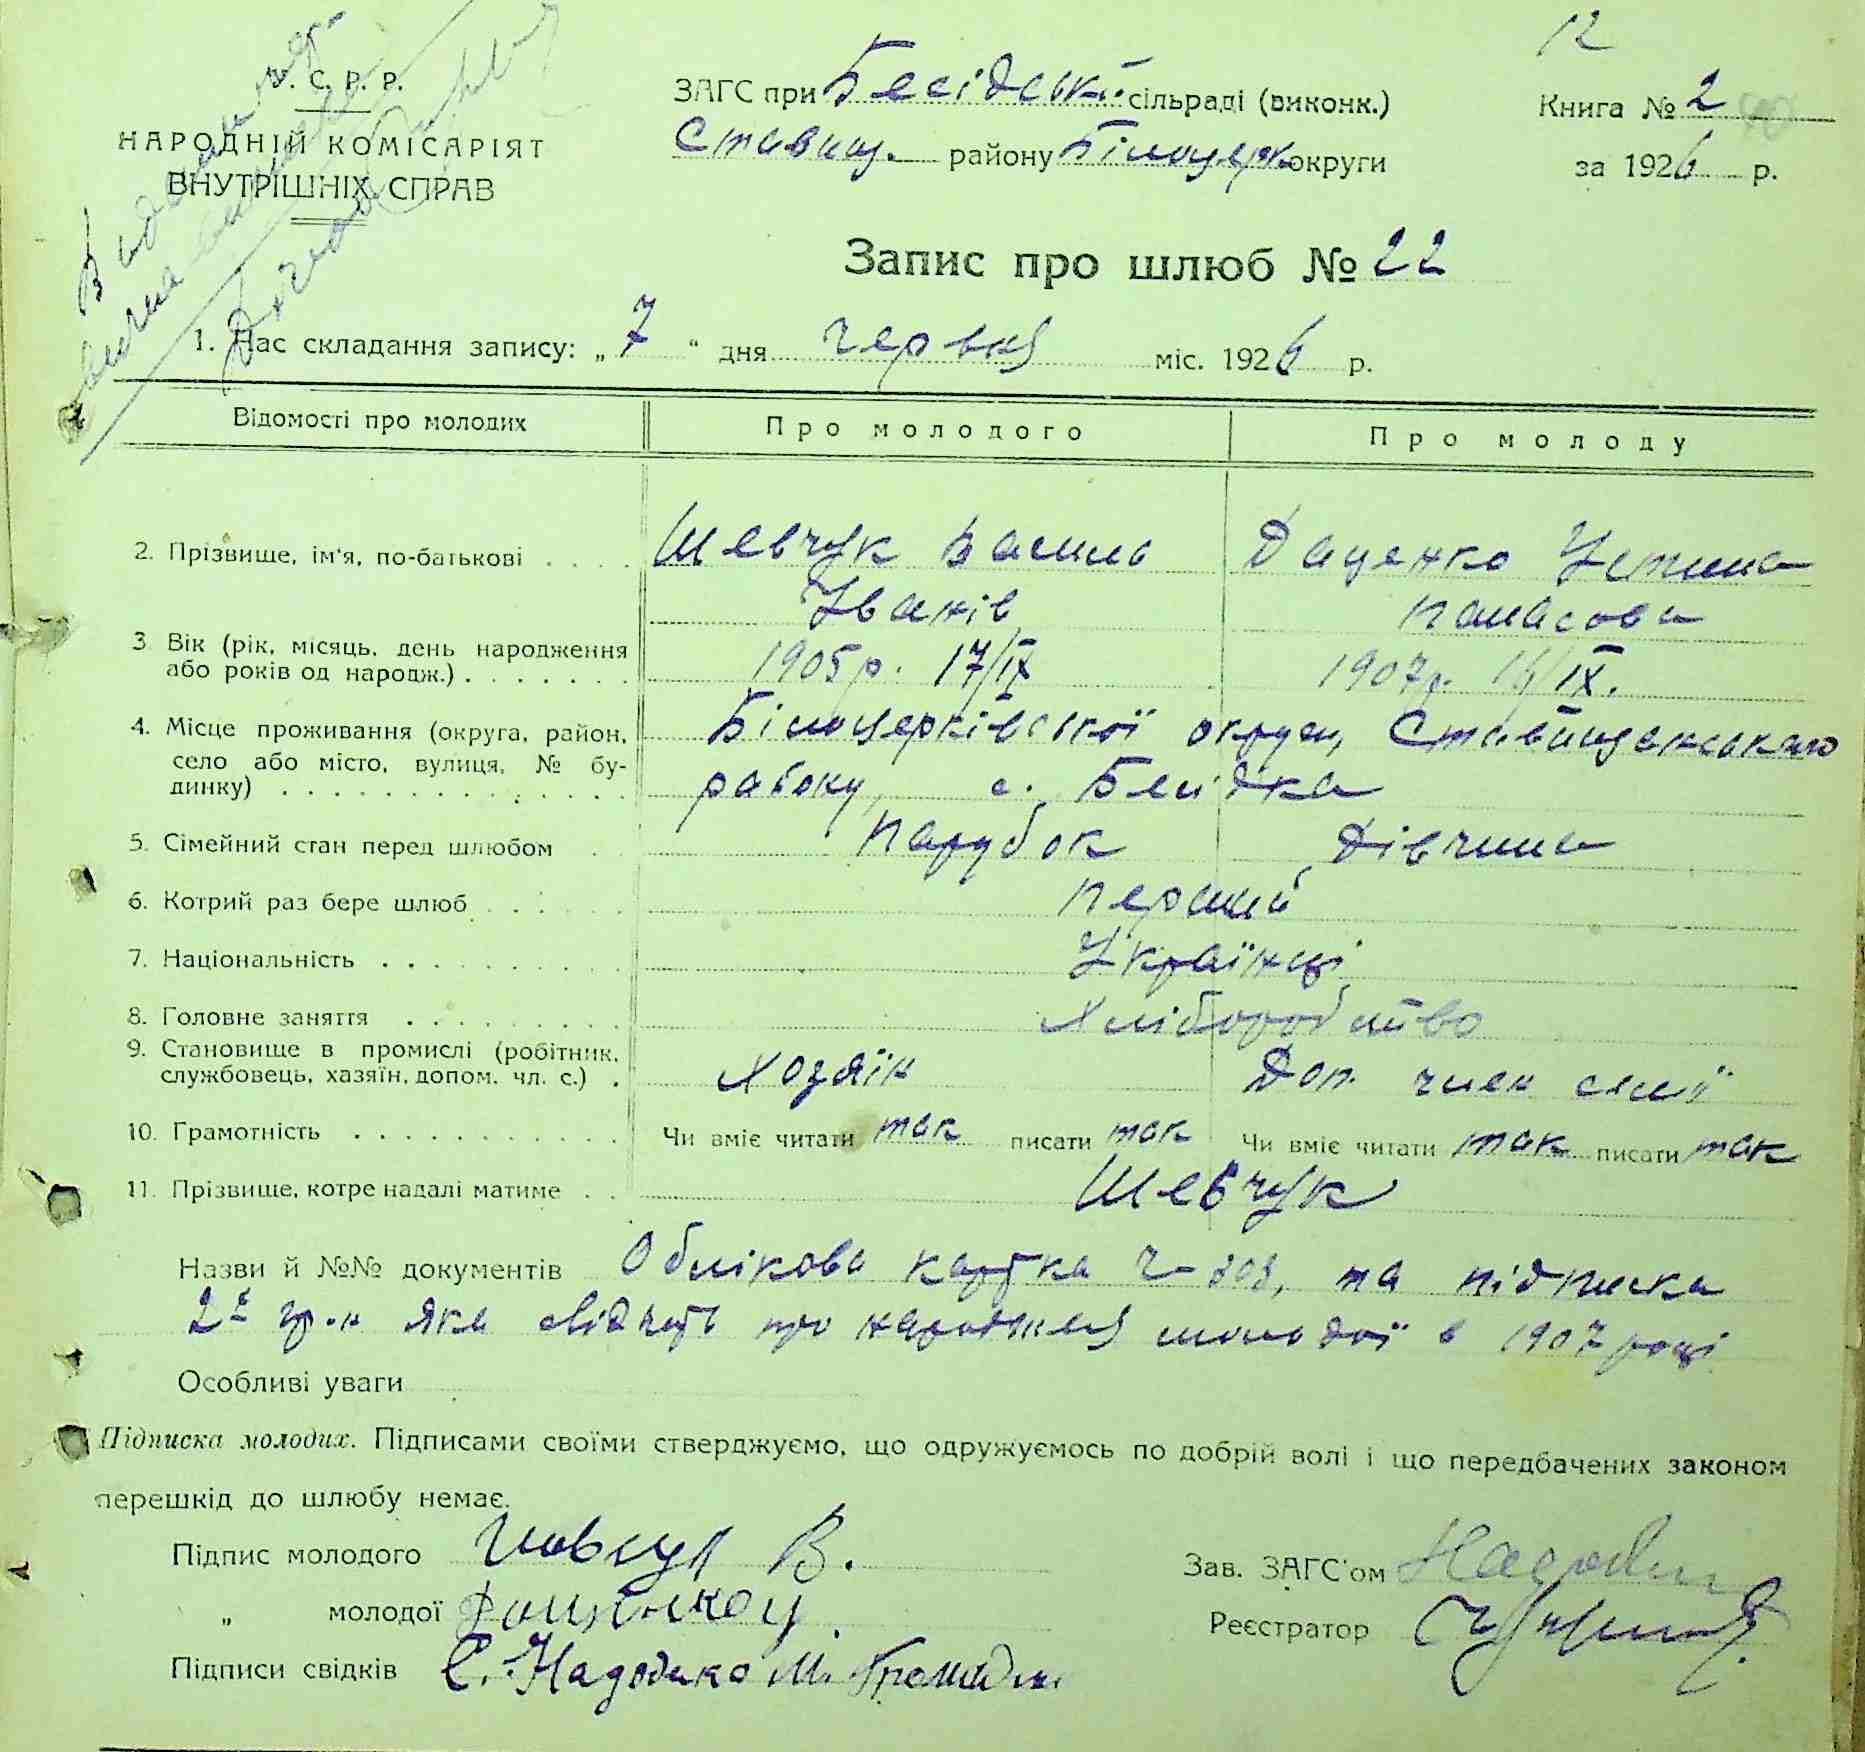 12
У. С. Р. Р.
НАРОДНІЙ КОМІСАРІЯТ
ВНУТРІШНІХ СПРАВ
ЗАГС при Бесідській сільраді (виконк.)
Ставищ. району Білоцерк. округи
Книга № 2
за 1926 р.
Запис про шлюб № 22
1. Час складання запису: „ 7 “ дня червня міс. 1926 р.
Відомості про молодих Про молодого Про молоду
2. Прізвище, ім'я, по-батькові Шевчук Василь Даценко Устина
Іванів Панасова
3 Вік (рік, місяць, день народження 1905 р. 17/IX 1907 р. /IX.
або років од народж.)
4. Місце проживання (округа, район, Білоцерківської округи, Ставищанського
село або місто, вулиця, № бу- району, с. Бесідка
динку)
5. Сімейний стан перед шлюбом парубок дівчина
6. Котрий раз бере шлюб перший
7. Національність Українці
8. Головне заняття Хліборобство
9. Становище в промислі (робітник, Хозяїн Доп. член сімї
службовець, хазяїн, допом. чл. с.)
10. Грамотність Чи вміє читати так писати так Чи вміє читати так писати так
11. Прізвище, котре надалі матиме Шевчук
Назви й №№ документів Облікова картка та підписка
2х гр.н яка свідчить про народження молодої в 1907 році
Особливі уваги
Підписка молодих. Підписами своїми стверджуємо, що одружуємось по добрій волі і що передбачених законом
перешкід до шлюбу немає.
Підпис молодого В.
„ молодої
Підписи свідків С. М.
Зав. ЗАГС'ом
Реєстратор